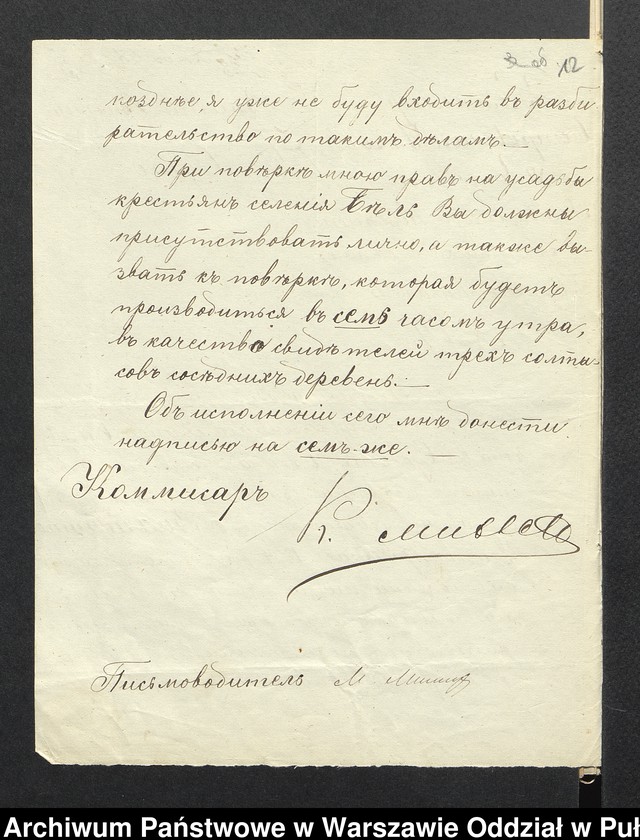 12
позднѣе, я уже не буду входить въ разби
рательство по такимъ дѣламъ.
При повѣркѣ мною правъ на усадьбы
крестьянъ селенія Бѣль Вы должны
присутствовать лично, а также вы-
звать къ повѣркѣ, которая будетъ
производиться въ семь часомъ утра,
въ качество свидѣтелей трехъ солты-
совъ сосѣднихъ деревень.
Объ исполненіи сего мнѣ донести
надписью на семъ-же.
Коммисаръ
К.
Письмоводитель М
Archiwum Państwowe w Warszawie Oddział w Puł